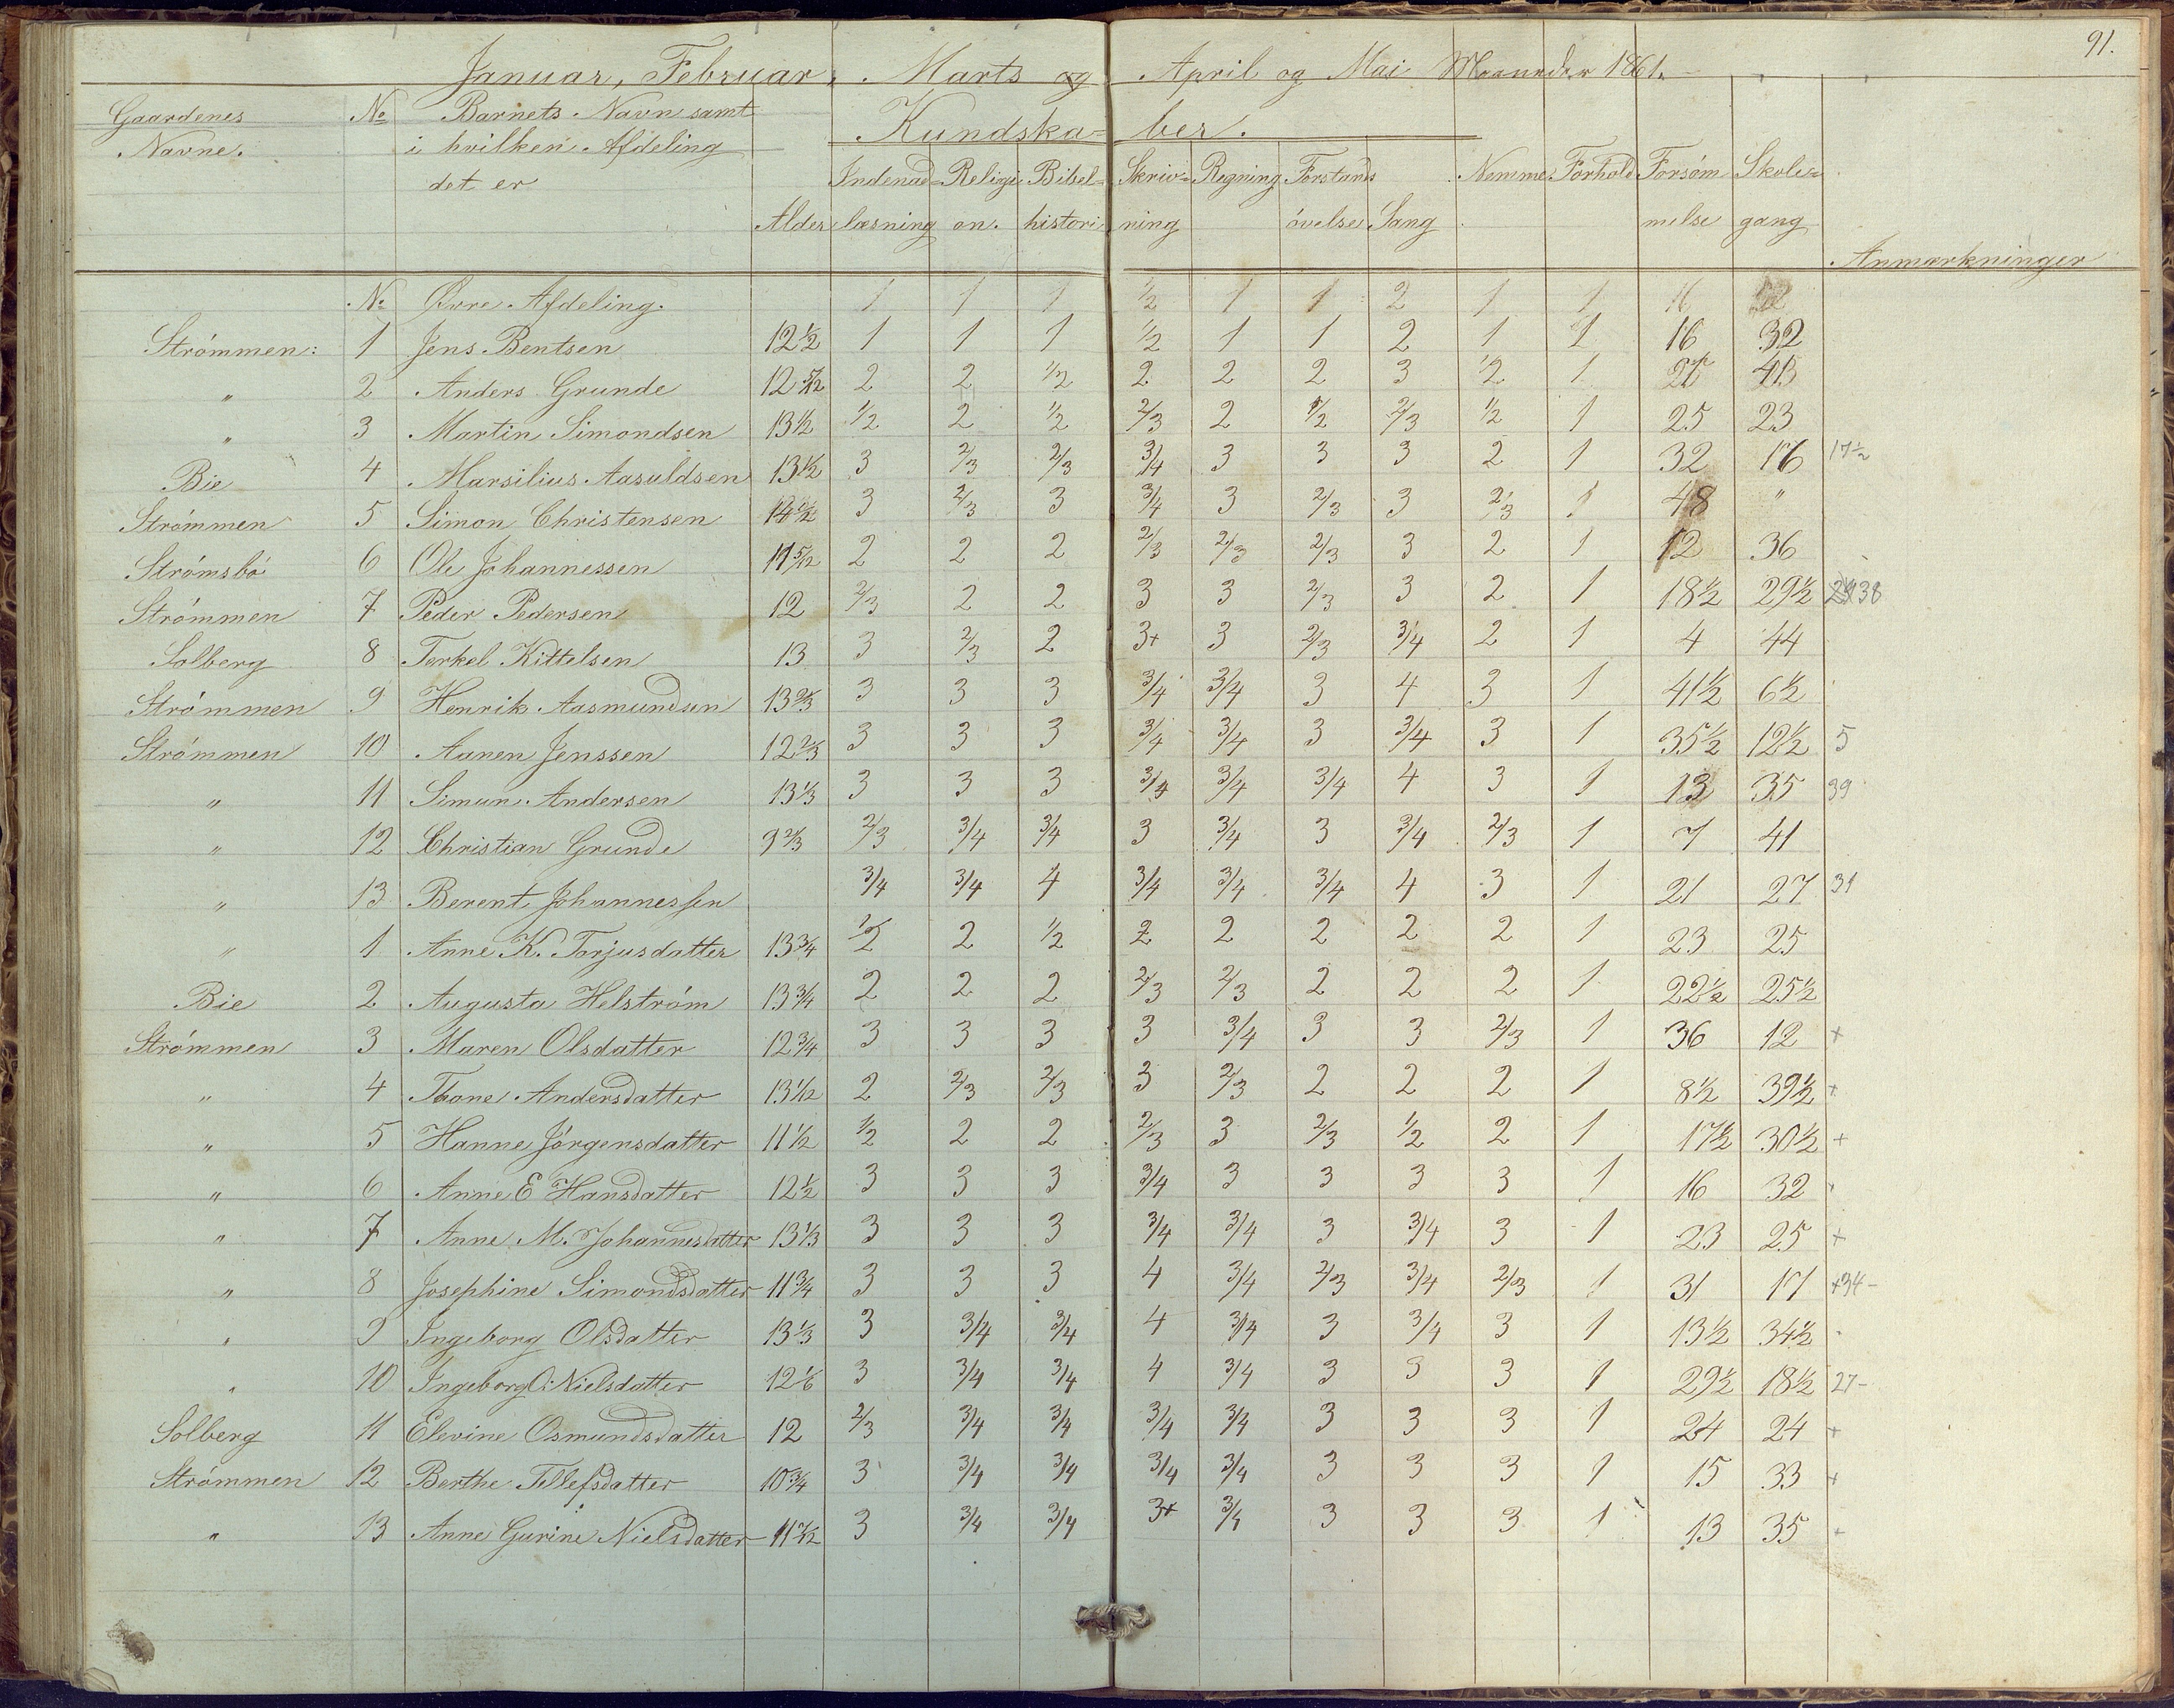 91.
Januar, Februar, Marts og April og Mai Maaneder 1861.
Gaardenes Navne. No Barnets Navn samt i hvilken Afdeling det er Alder Kundskaber.
Indenadlæsning Religion. Bibelhistori Skrivning Regning Forstandsøvelse Sang Nemme Forhold Forsømmelse Skolegang Anmærkninger
No Øvre Afdeling. 1 1 1 1/2 1 1 2 1 1 16
Strömmen: 1 Jens Bentsen 12 1/2 1 1 1 1/2 1 1 2 1 1 16 32
" 2 Anders Grunde 12 5/12 2 2 1/2 2 2 2 3 1/2 1
" 3 Martin Simondsen 13 1/2 1/2 2 1/2 2/3 2 1/2 2/3 1/2 1 25 23
Bie 4 Marsilius Aasuldsen 13 1/2 3 2/3 2/3 3/4 3 3 3 2 1 32 16 17 1/2
Strömmen 5 Simon Christensen 14 1/2 3 2/3 3 3/4 3 2/3 3 2/3 1 48 "
Strömsbö 6 Ole Johannessen 11 5/12 2 2 2 2/3 2/3 2/3 3 2 1 12 36
Strömmen 7 Peder Pedersen 12 2/3 2 2 3 3 2/3 3 2 1 18 1/2 29 1/2 38
Solberg 8 Terkel Kittelsen 13 3 2/3 2 3+ 3 2/3 3/4 2 1 4 44
Strömmen 9 Henrik Aasmundsen 13 2/3 3 3 3 3/4 3/4 3 4 3 1 41 1/2 6 1/2
Strömmen 10 Aanen Jenssen 12 2/3 3 3 3 3/4 3/4 3 3/4 3 1 35 1/2 12 1/2 5
" 11 Simun Andersen 13 1/3 3 3 3 3/4 3/4 3/4 4 3 1 13 35 39
" 12 Christian Grunde 9 2/3 2/3 3/4 3/4 3 3/4 3 3/4 2/3 1 7 41
" 13 Berent Johannessen 3/4 3/4 4 3/4 3/4 3/4 4 3 1 21 27 31
" 1 Anne K. Torjusdatter 13 3/4 1/2 2 1/2 2 2 2 2 2 1 23 25
Bie 2 Augusta Helström 13 3/4 2 2 2 2/3 2/3 2 2 2 1 22 1/2 25 1/2
Strömmen 3 Maren Olsdatter 12 3/4 3 3 3 3 3/4 3 3 2/3 1 36 12 +
" 4 Thone Andersdatter 13 1/12 2 2/3 2/3 3 2/3 2 2 2 1 8 1/2 39 1/2 +
" 5 Hanne Jörgensdatter 11 1/2 1/2 2 2 2/3 3 2/3 1/2 2 1 17 1/2 30 1/2 +
" 6 Anne E Hansdatter 12 1/2 3 3 3 3/4 3 3 3 3 1 16 32
" 7 Anne M. Johannesdatter 13 1/3 3 3 3 3/4 3/4 3 3/4 3 1 23 25 +
" 8 Josephine Simondsdatter 11 3/4 3 3 3 4 3/4 2/3 3/4 2/3 1 31 17 +34-
" 9 Ingeborg Olsdatter 13 1/3 3 3/4 3/4 4 3/4 3 3/4 3 1 13 1/2 34 1/2
" 10 Ingeborg O. Nielsdatter 12 1/6 3 3/4 3/4 4 3/4 3 3 3 1 29 1/2 18 1/2 27-
Solberg 11 Elevine Osmundsdatter 12 2/3 3/4 3/4 3/4 3/4 3 3 3 1 24 24 +
Strömmen 12 Berthe Tellefsdatter 10 3/4 3 3/4 3/4 3/4 3/4 3 3 3 1 15 33 +
" 13 Anne Gurine Nielsdatter 3 3/4 3/4 3+ 3/4 3 3 3 1 13 35 +